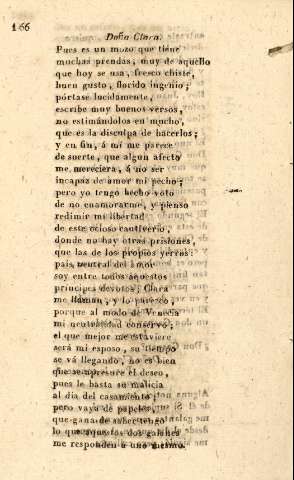 166
Doña Clara.
Pues es un mozo que tiene
muchas prendas, muy de aquello
que hoy se usa, fresco chiste,
buen gusto, florido ingenio;
pórtase lucidamente,
escribe muy buenos versos,
no estimándolos en mucho,
que es la disculpa de hacerlos;
y en fin, á mí me parece
de suerte, que algun afecto
me mereciera, á no ser
incapaz de amor mi pecho;
pero yo tengo hecho voto
de no enamorarme, y pienso
redimir mi libertad
de este ocioso cautiverio,
donde no hay otras prisiones,
que las de los propios yerros:
pais neutral del amor
soy entre todos aquestos
príncipes devotos; Clara
me llaman, y lo parezco,
porque al modo de Venecia
mi neutralidad conservo;
el que mejor me estuviere
será mi esposo, su tiempo
se vá llegando, no es bien
que se apresure el deseo,
pues le basta su malicia
al dia del casamiento;
pero vaya de papeles,
que gana de saber tengo
lo que aquestos dos galanes
me responden á uno mesmo.